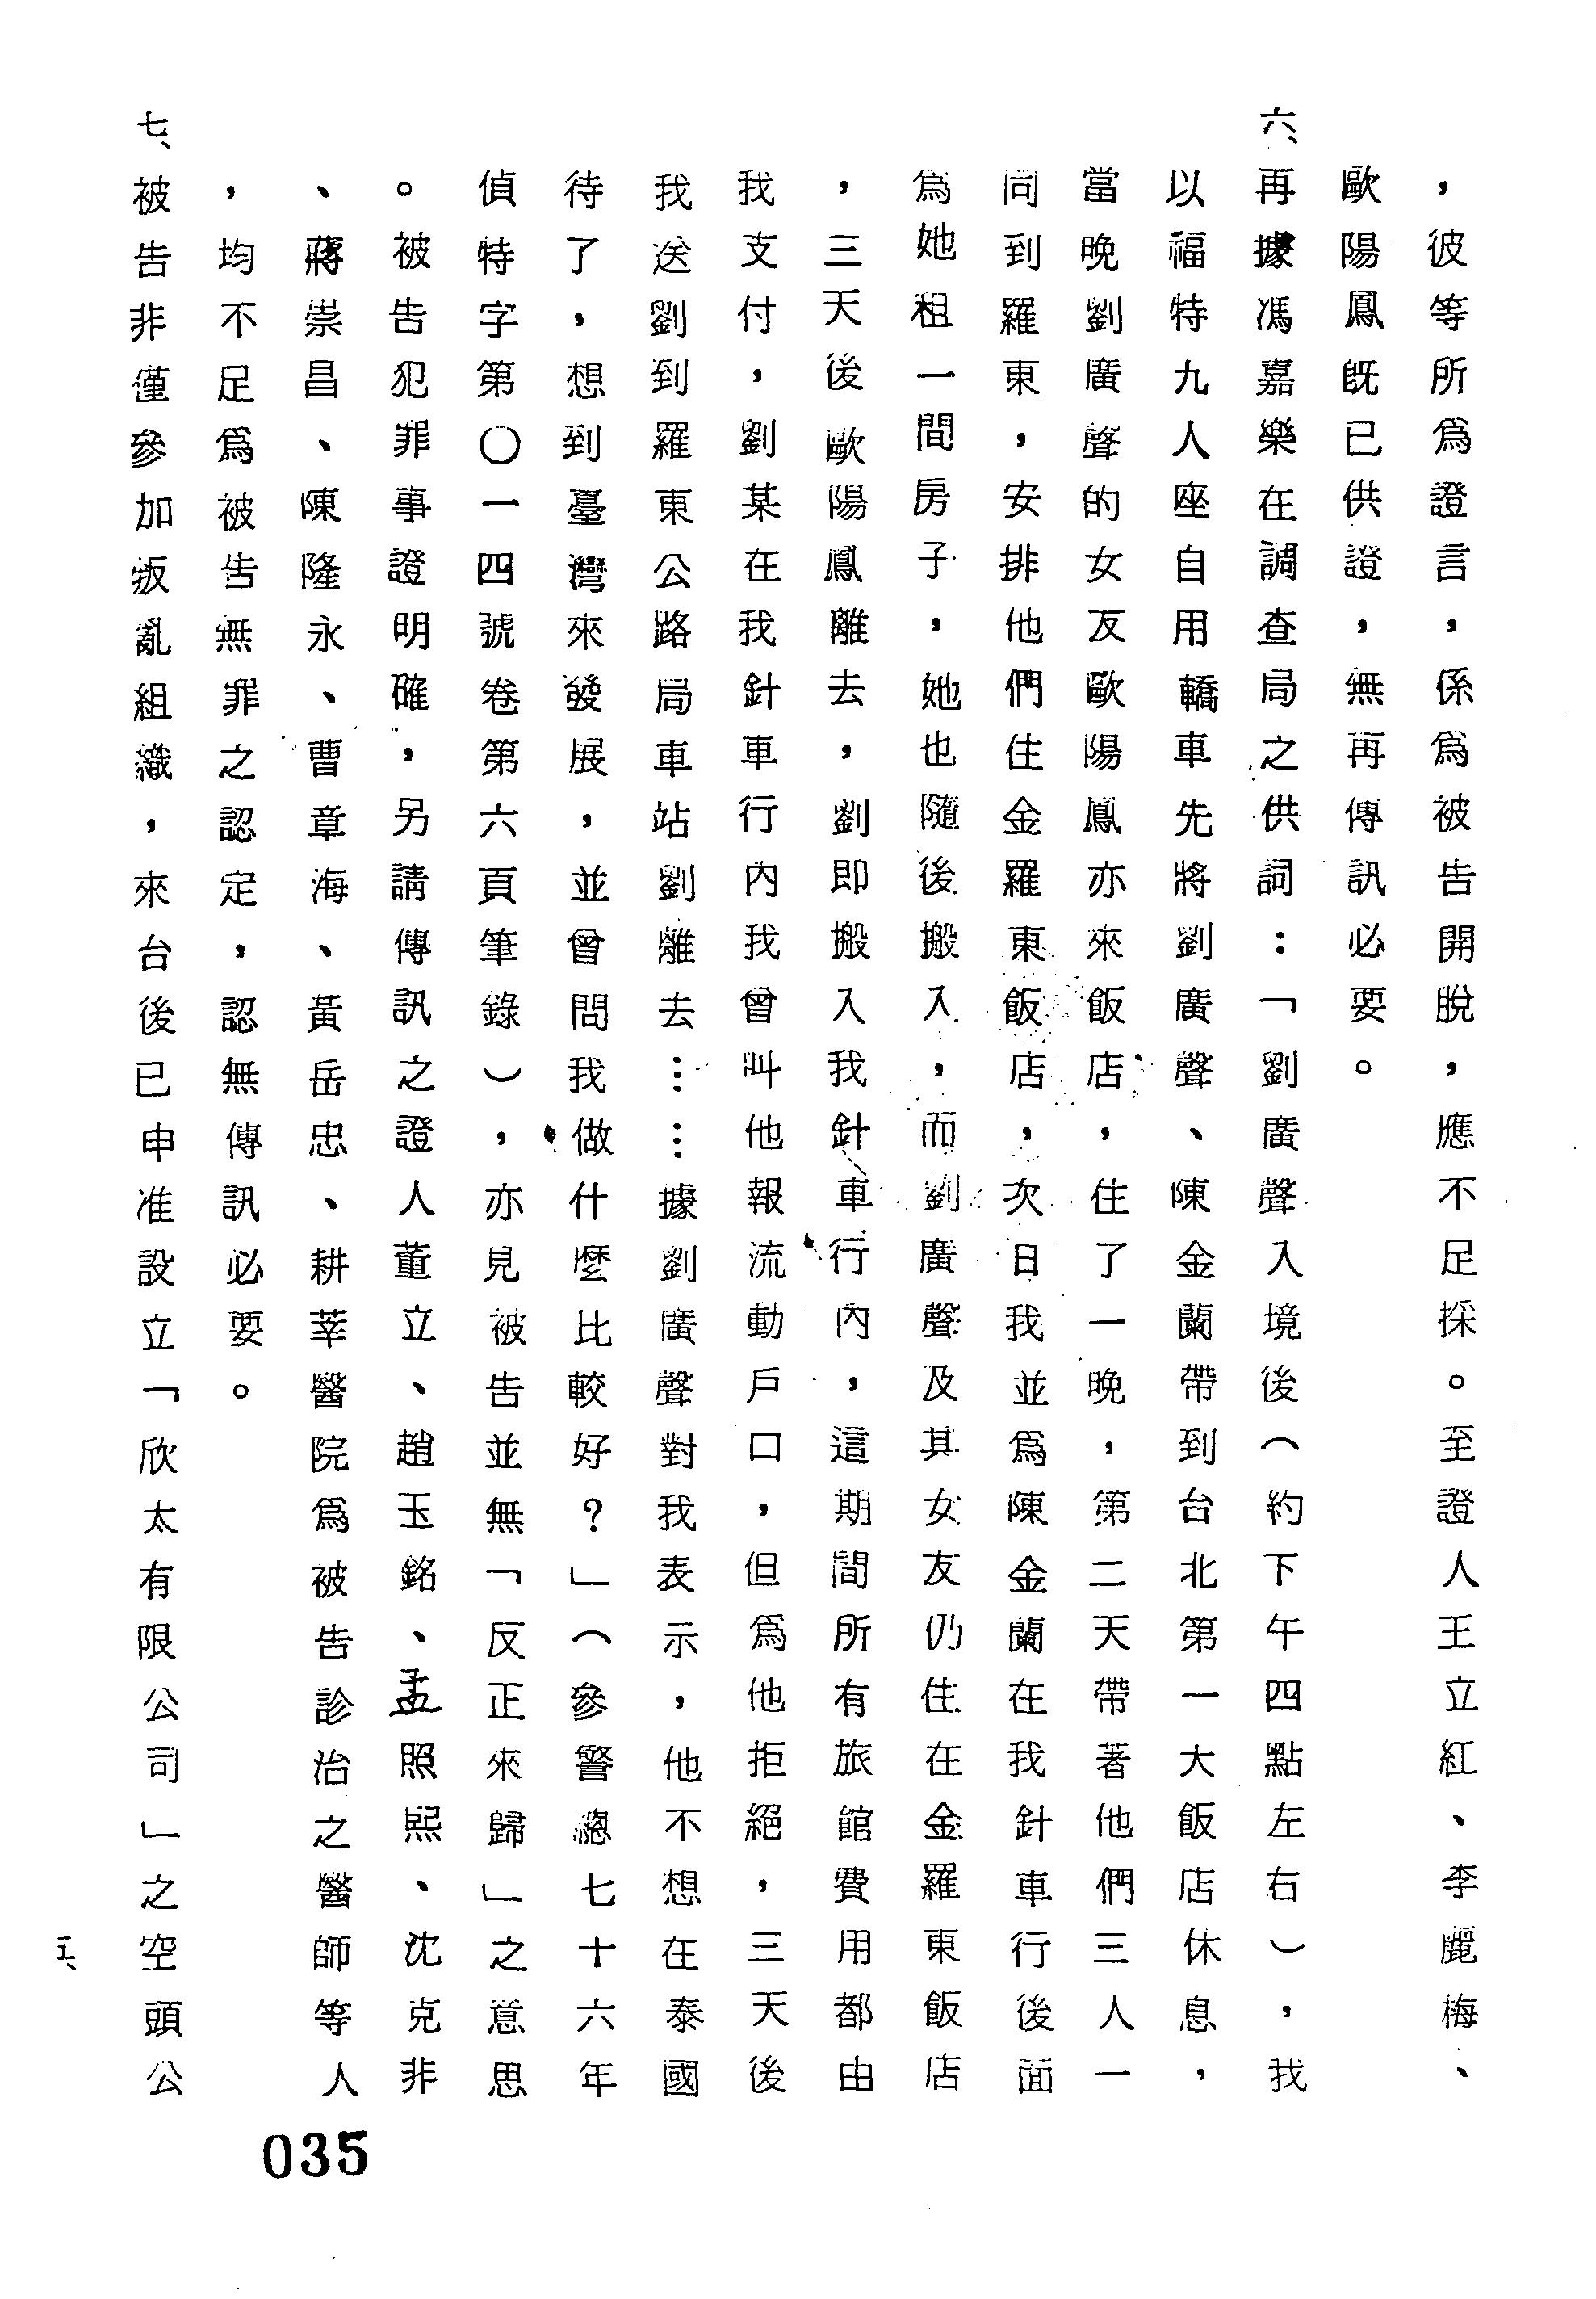 ，彼等所為證言，係為被告開脫，應不足採。至證人王立紅、李麗梅、
歐陽鳳既已供證，無再傳訊必要。
六、再據馮嘉樂在調查局之供詞：「劉廣聲入境後（約下午四點左右），我
以福特九人座自用轎車先將劉廣聲、陳金蘭帶到台北第一大飯店休息，
當晚劉廣聲的女友歐陽鳳亦來飯店，住了一晚，第二天帶著他們三人一
同到羅東，安排他們住金羅東飯店，次日我並為陳金蘭在我針車行後面
為她租一間房子，她也隨後搬入，而劉廣聲及其女友仍住在金羅東飯店
，三天後歐陽鳳離去，劉即搬入我針車行內，這期間所有旅館費用都由
我支付，劉某在我針車行內我曾叫他報流動戶口，但為他拒絕，三天後
我送劉到羅東公路局車站劉離去……據劉廣聲對我表示，他不想在泰國
待了，想到臺灣來發展，並曾問我做什麼比較好？」（參警總七十六年
偵特字第〇一四號卷第六頁筆錄），亦見被告並無「反正來歸」之意思
。被告犯罪事證明確，另請傳訊之證人董立、趙玉銘、孟照熙、沈克非
、蔣崇昌、陳隆永、曹章海、黃岳忠、耕莘醫院為被告診治之醫師等人
，均不足為被告無罪之認定，認無傳訊必要。
七、被告非僅參加叛亂組織，來台後已申准設立「欣太有限公司」之空頭公
035